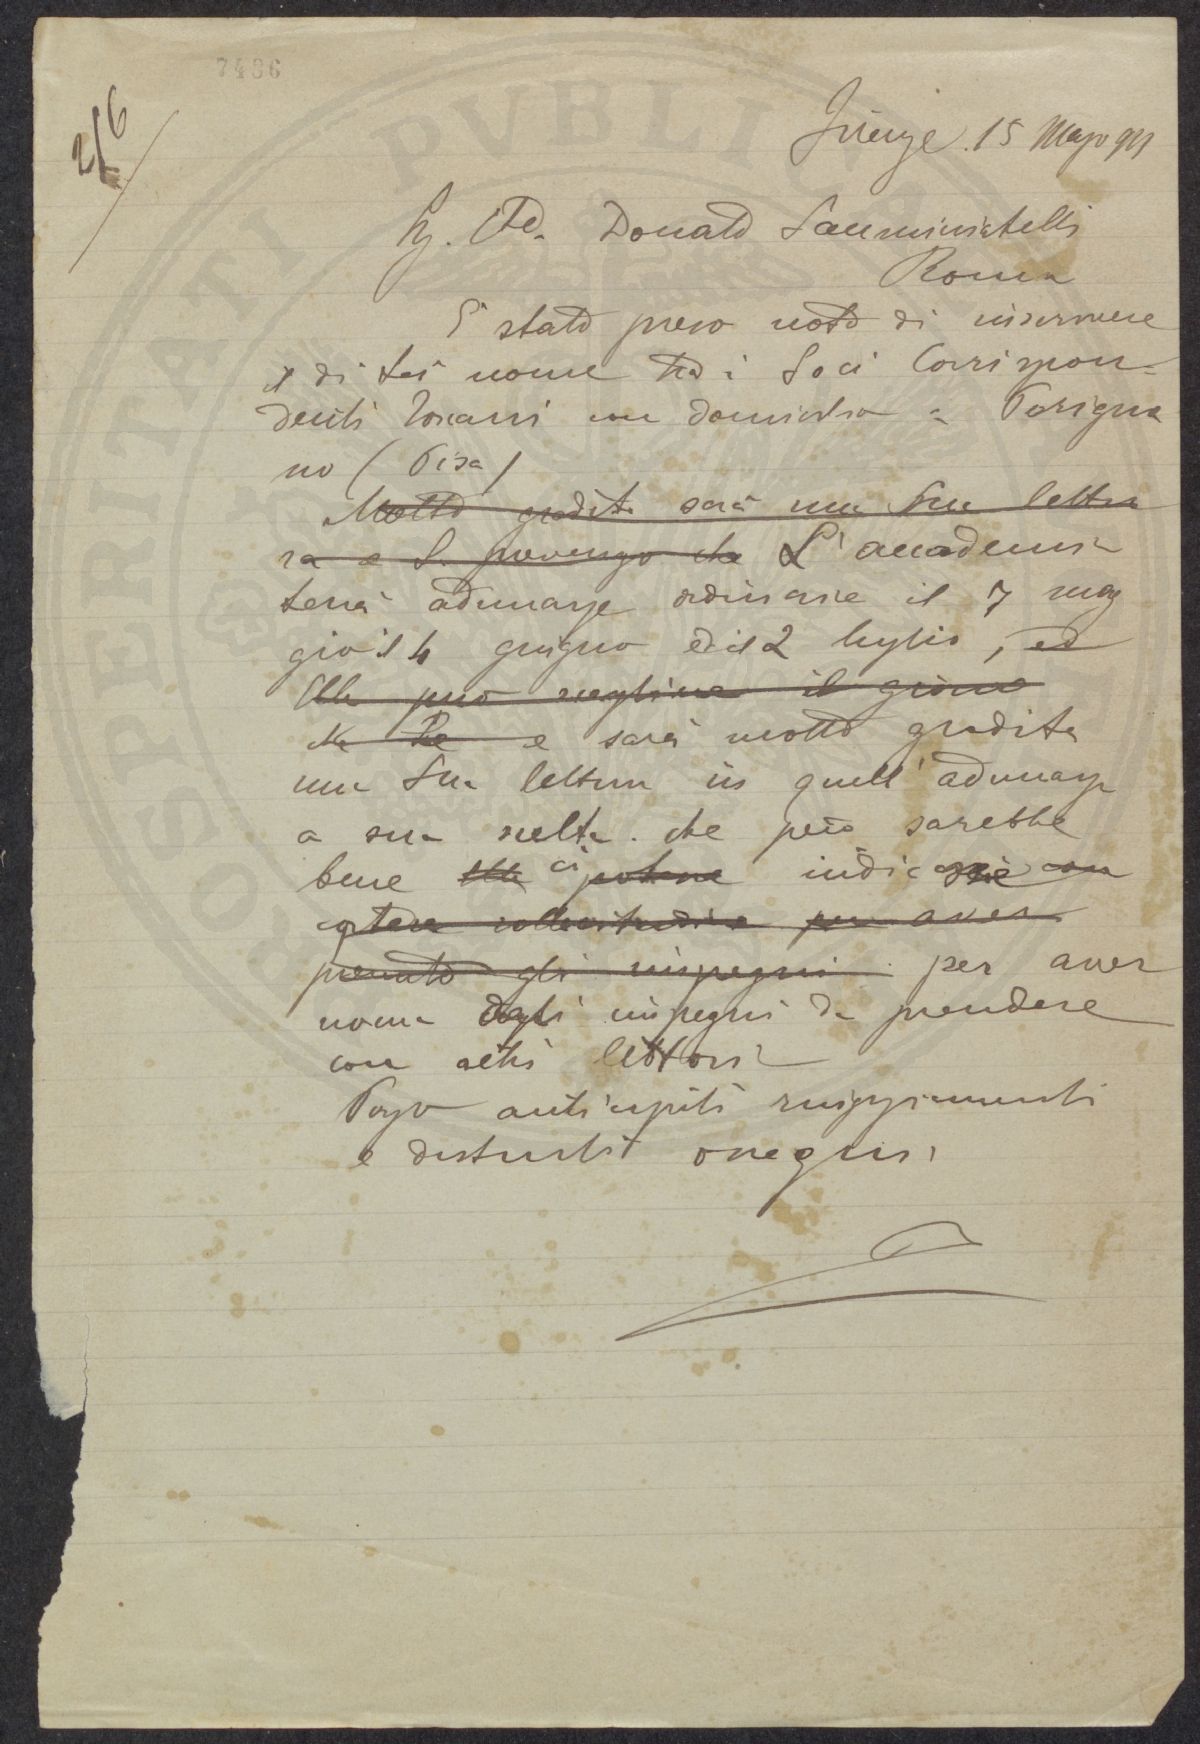 7486
216
Firenze. 15 Marzo 911
Donato Sanminiatelli
Roma
È stato preso nota di inscrivere
il di Lei nome tra i Soci Corrispon=
denti Toscani con domicilio a Perigna
no (Pisa)
Molto gradita sarà una Sua lettu
ra e L'accademia
terrà adunanze ordinarie il 7 mag
gio il 4 giugno ed il 2 luglio, ed
Ella può scegliere il giorno
che e sarà molto gradita
una Sua lettura in quell'adunanza
a sua scelta. che però sarebbe
bene Ella ci potesse indicasse con
sollecitudine per aver
gli impegni per aver
norma degli impegni da prendere
con altri lettori
Porgo anticipati ringraziamenti
e distinti ossequi